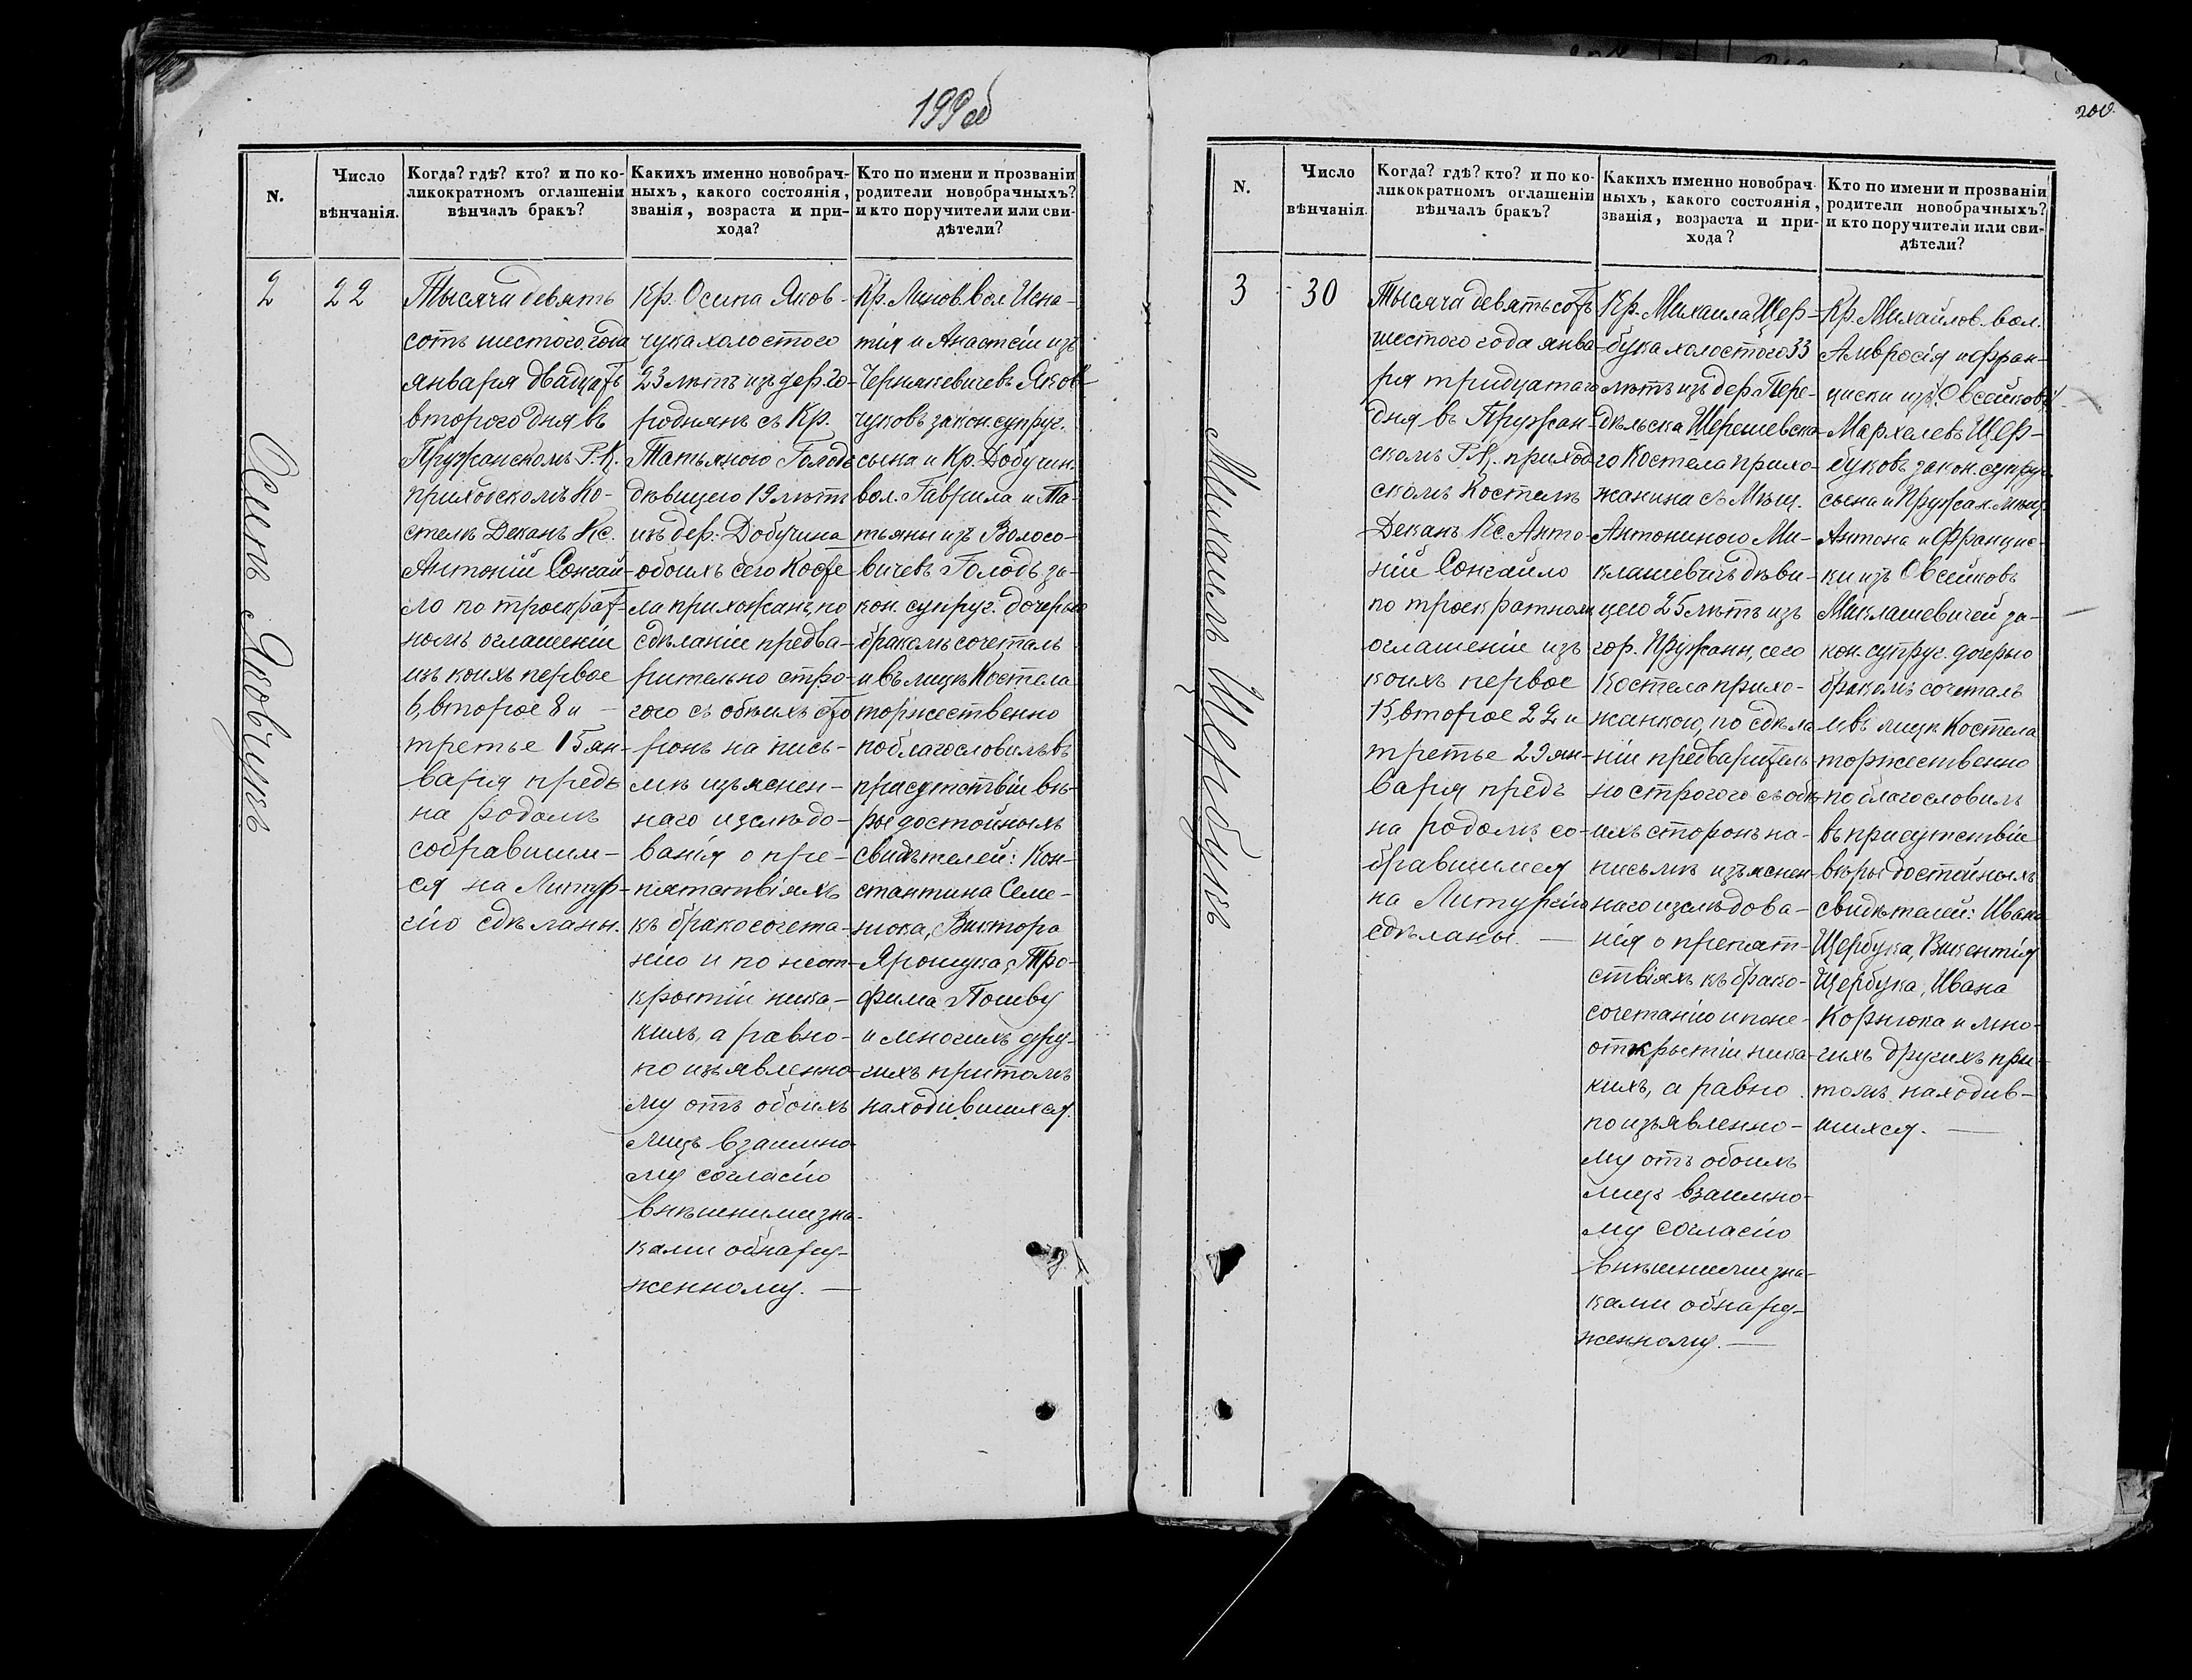 199об
N.
Число
вѣнчанія.
Когда? гдѣ? кто? и по ко-
ликократномъ оглашеніи
вѣнчалъ бракъ?
Какихъ именно новобрач-
ныхъ, какого состоянія,
званія, возраста и при-
хода?
Кто по имени и прозваніи
родители новобрачныхъ?
и кто поручители или сви-
дѣтели?
2
22
Осипъ Яковчукъ
Тысяча девять
сотъ шестого года
января двадцать
второго дня въ
Пружанскомъ Р. К.
приходскомъ Ко-
стелѣ Деканъ Кс.
Антоній Сонгай-
ло по троекрат-
номъ оглашеніи
изъ коихъ первое
6, второе 8 и —
третье 15 ян-
варя предъ
на родомъ
собравшим-
ся на Литур-
гію сдѣланы.
Кр. Осипа Яков-
чука холостого
23 лѣтъ изъ дер. Го-
роднянъ съ Кр.
Татьяною Голодъ
дѣвицею 19 лѣтъ
изъ дер. Добучина
обоихъ сего Косте
ла прихожанъ, по
сдѣланіи предва-
рительно стро-
гого съ обѣихъ сто
ронъ на пись-
мѣ изъяснен-
наго изслѣдо-
ванія о пре-
пятствіяхъ
къ бракосочета-
нію и по неот-
крытіи ника-
кихъ, а равно-
по изъявленно-
му отъ обоихъ
лицъ взаимно-
му согласію
внѣшними зна-
ками обнару-
женному. —
Кр. Линов. вол. Игна-
тія и Анастсіи изъ
Чернякевичевъ Яков-
чуковъ закон. супруг.
сына и Кр. Добучин.
вол. Гаврила и Та-
тьяны изъ Волосо-
вичевъ Голодъ за-
кон. супруг. дочерью
бракомъ сочеталъ
и въ лицѣ Костела
торжественно
поблагословилъ въ
присутствіи вѣ-
ры достойныхъ
свидѣтелей: Кон-
стантина Семе-
нюка, Виктора
Ярошука, Тро-
фима Пошву
и многихъ дру-
гихъ притомъ
находившихся.
200.
N.
Число
вѣнчанія.
Когда? гдѣ? кто? и по ко-
ликократномъ оглашеніи
вѣнчалъ бракъ?
Какихъ именно новобрач-
ныхъ, какого состоянія,
званія, возраста и при-
хода?
Кто по имени и прозваніи
родители новобрачныхъ?
и кто поручители или сви-
дѣтели?
3
30
Михаилъ Щербукъ
Тысяча девятьсотъ
шестого года янва-
ря тридцатаго
дня въ Пружан-
скомъ Р. К. приход-
скомъ Костелѣ
Деканъ Кс. Анто-
ній Сонгайло
по троекратномъ
оглашеніи изъ
коихъ первое
15, второе 22 и
третье 29 ян-
варя предъ
на родомъ со-
бравшимся
на Литургію
сдѣланы. —
Кр. Михаила Щер-
бука холостого 33
лѣтъ изъ дер. Пере-
дѣльска Шерешевска-
го Костела прихо-
жанина съ Мѣщ.
Антониною Ми-
клашевичъ дѣви-
цею 25 лѣтъ изъ
гор. Пружаны, сего
Костела прихо-
жанкою, по сдѣла-
ніи предваритель-
но строгого съ обѣ-
ихъ сторонъ на-
письмѣ изъяснен-
наго изслѣдова-
нія о препят-
ствіяхъ къ брако-
сочетанію и по не-
открытіи ника-
кихъ, а равно
по изъявленно-
му отъ обоихъ
лицъ взаимно-
му согласію
внѣшними зна-
ками обнару-
женному. —
Кр. Михайлов. вол.
Амвросія и Фран-
циски изъ Овсейковъ
Мархелевъ Щер-
буковъ закон. супруг.
сына и Пружан. мѣщ.
Антона и Францис-
ки изъ Овсейковъ
Миклашевичей за-
кон. супруг. дочерью
бракомъ сочеталъ
и въ лицѣ Костела
торжественно
поблагословилъ
въ присутствіи
вѣры достойныхъ
свидѣтелей: Ивана
Щербука, Викентія
Щербука, Ивана
Корнюка и мно-
гихъ другихъ при-
томъ находив-
шихся. —